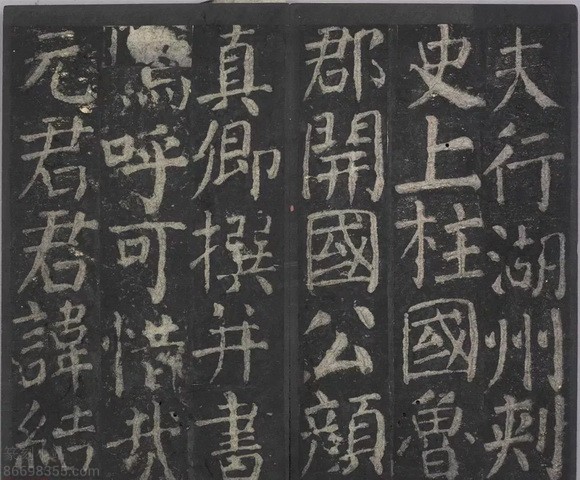 夫行湖州刺
史上柱國魯
郡開國公顏
真卿撰并書
嗚呼可惜哉
元君君諱結
86698355.com